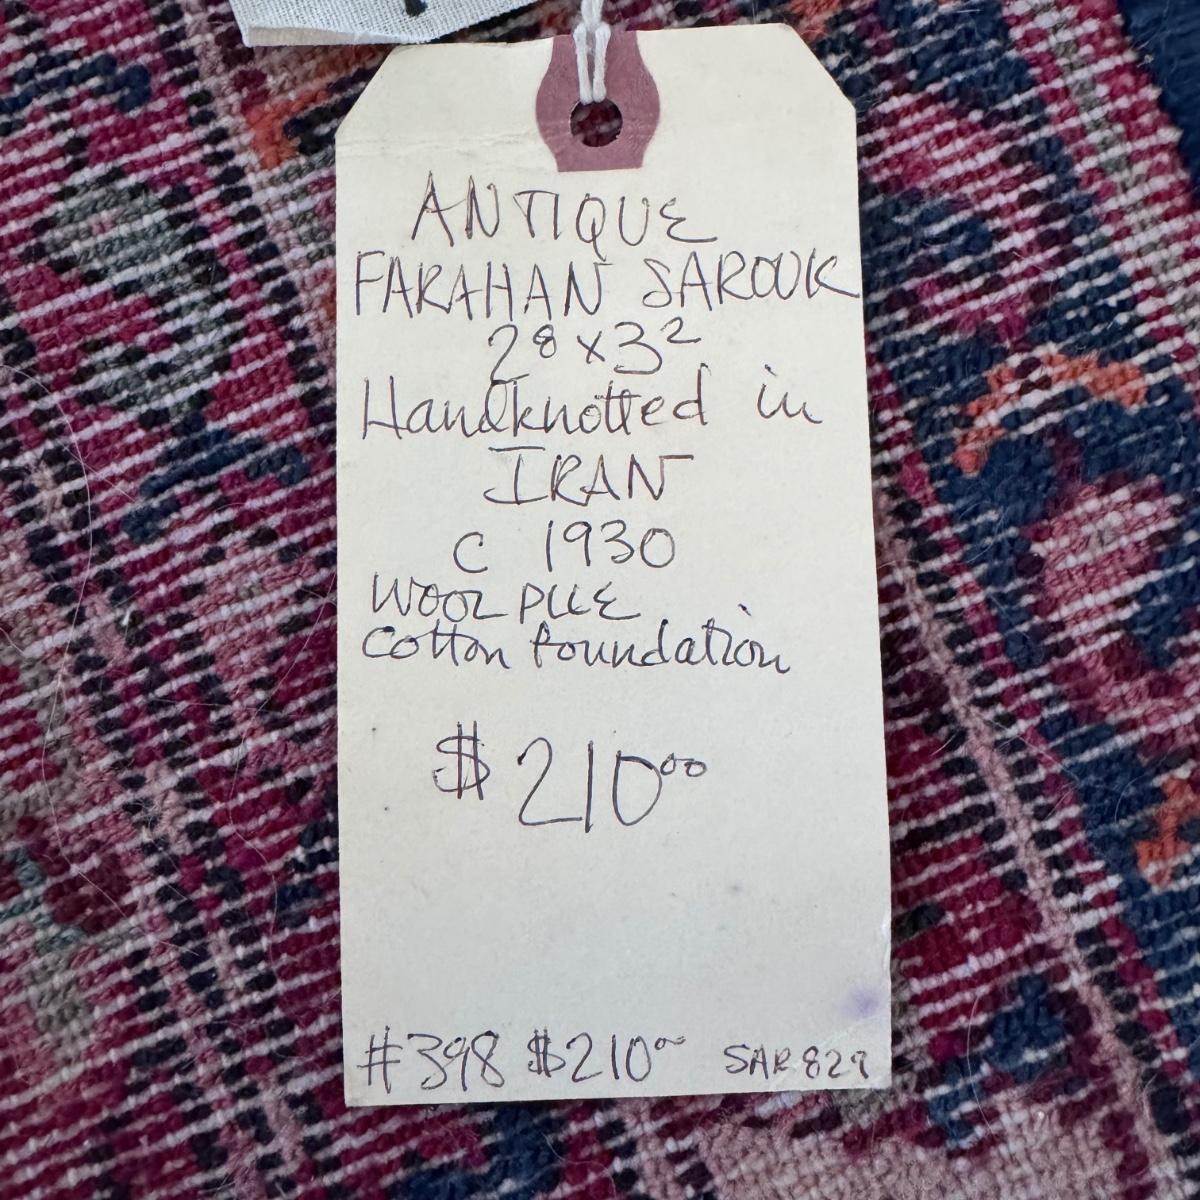 ANTIQUE
FARAHAN SAROUK
2⁸ x 3²
Handknotted in
IRAN
C 1930
WOOL PILE
Cotton foundation
$210⁰⁰
#398 $210⁰⁰ SAR 829